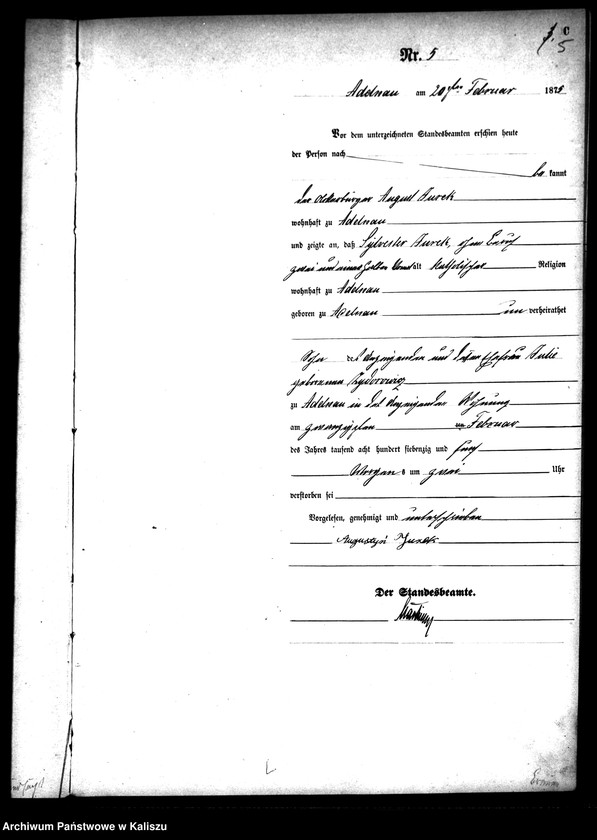 C
5
Nr. 5
Adelnau am 20sten Februar 1875
Vor dem unterzeichneten Standesbeamten erschien heute
der Person nach
be kannt
der Ackerbürger August Jurek
wohnhaft zu Adelnau
und zeigte an, daß Sylvester Jurek, ohne Beruf
zwei und einen halben Monat alt katholischer Religion
wohnhaft zu Adelnau
geboren zu Adelnau un verheirathet
Sohn des Anzeigenden und dessen Ehefrau Julie
geborenen
zu Adelnau in des Anzeigenden Wohnung
am zwanzigsten Februar
des Jahres tausend acht hundert siebenzig und fünf
Morgen s um zwei Uhr
verstorben sei
Vorgelesen, genehmigt und unterschrieben
Augustyn Jurek
Der Standesbeamte.
Archiwum Państwowe w Kaliszu